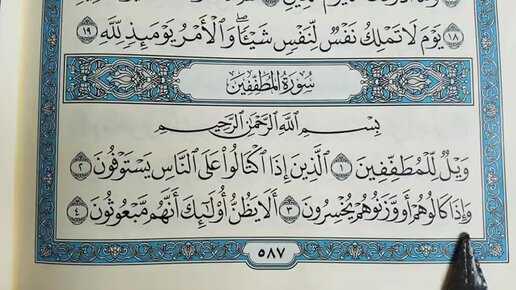 يَوْمَ لَا تَمْلِكُ نَفْسٌ لِّنَفْسٍ شَيْـًٔا ۖ وَٱلْأَمْرُ يَوْمَئِذٍ لِّلَّهِ ١٩
سُورَةُ المُطَفِّفِينَ
بِسْمِ ٱللَّهِ ٱلرَّحْمَٰنِ ٱلرَّحِيمِ
وَيْلٌ لِّلْمُطَفِّفِينَ ١ ٱلَّذِينَ إِذَا ٱكْتَالُوا۟ عَلَى ٱلنَّاسِ يَسْتَوْفُونَ ٢
وَإِذَا كَالُوهُمْ أَو وَّزَنُوهُمْ يُخْسِرُونَ ٣ أَلَا يَظُنُّ أُو۟لَٰٓئِكَ أَنَّهُم مَّبْعُوثُونَ ٤
٥٨٧